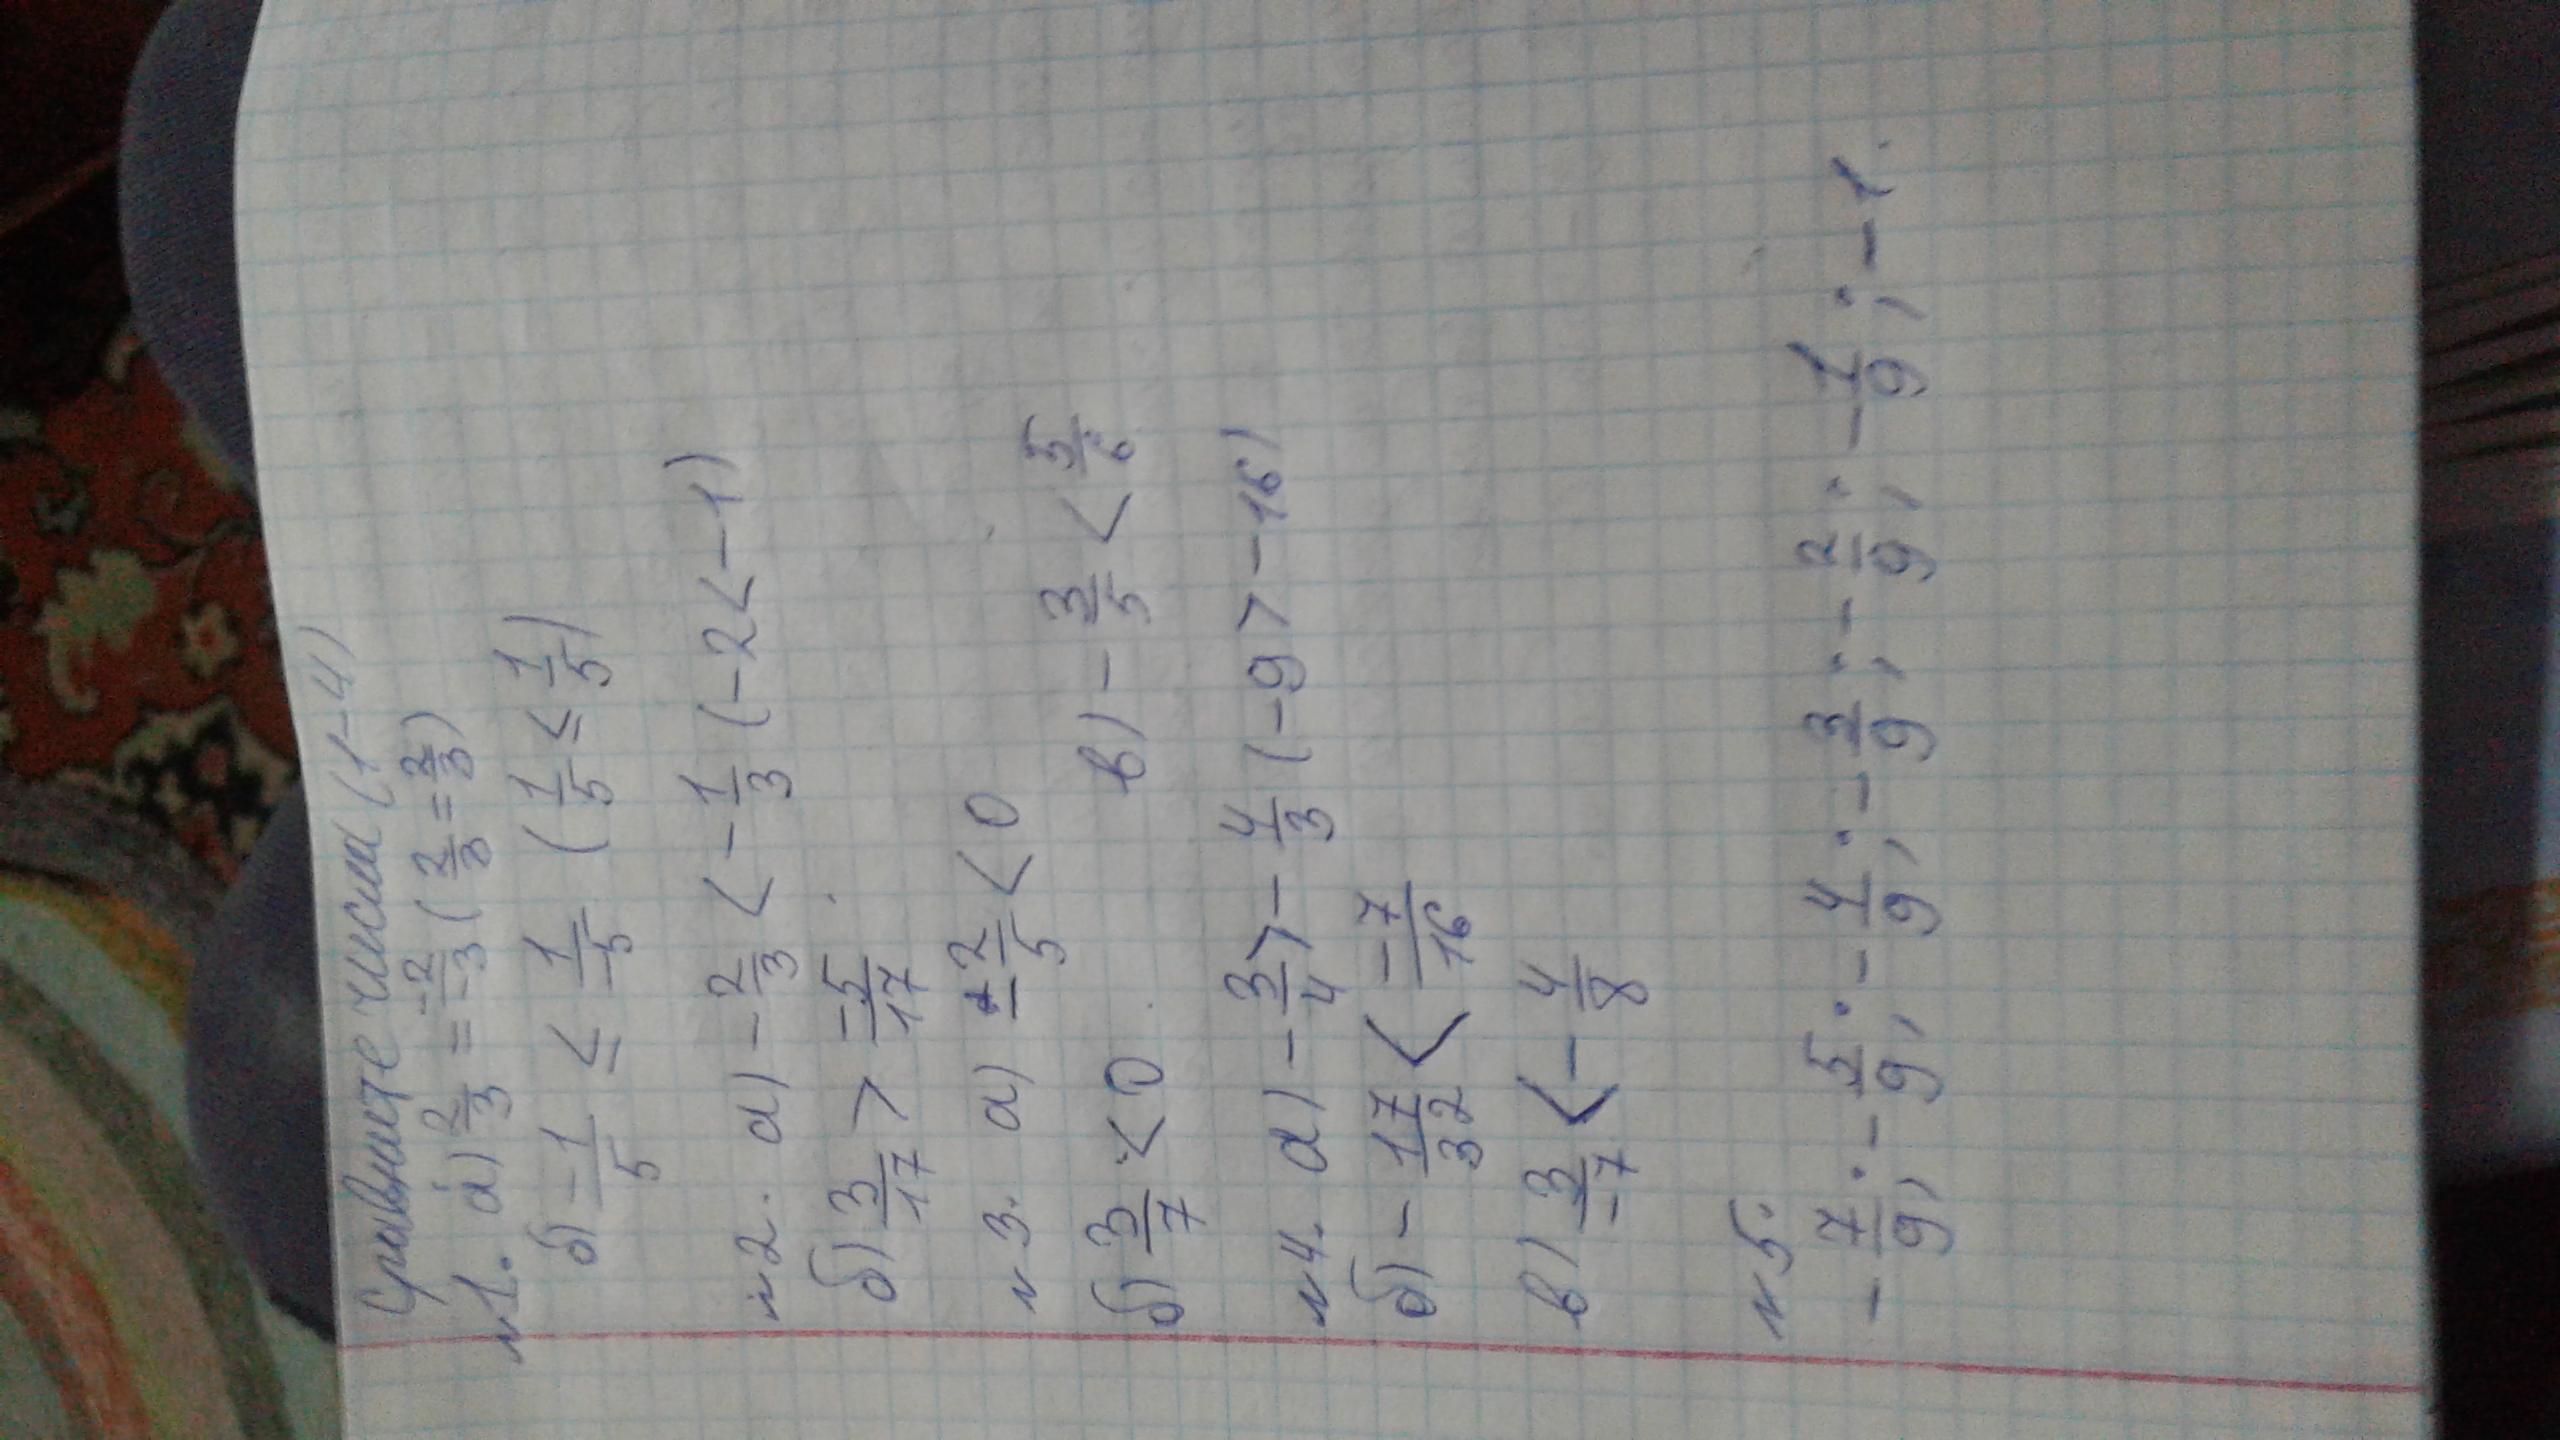 Сравните числа (1-4)
№1. а) 2/3 = -2/-3 (2/3 = 2/3)
б) -1/5 ≤ 1/-5 (1/5 ≤ 1/5)
№2. а) -2/3 < -1/3 (-2 < -1)
б) 3/17 > -5/17
№3. а) -2/5 < 0
б) 3/7 < 0 в) -3/5 < 5/6
№4. а) -3/4 > -4/3 (-9 > -16)
б) -17/32 < -7/16
в) 3/-7 < -4/8
№5.
-7/9; -5/9; -4/9; -3/9; -2/9; -1/9; -1.